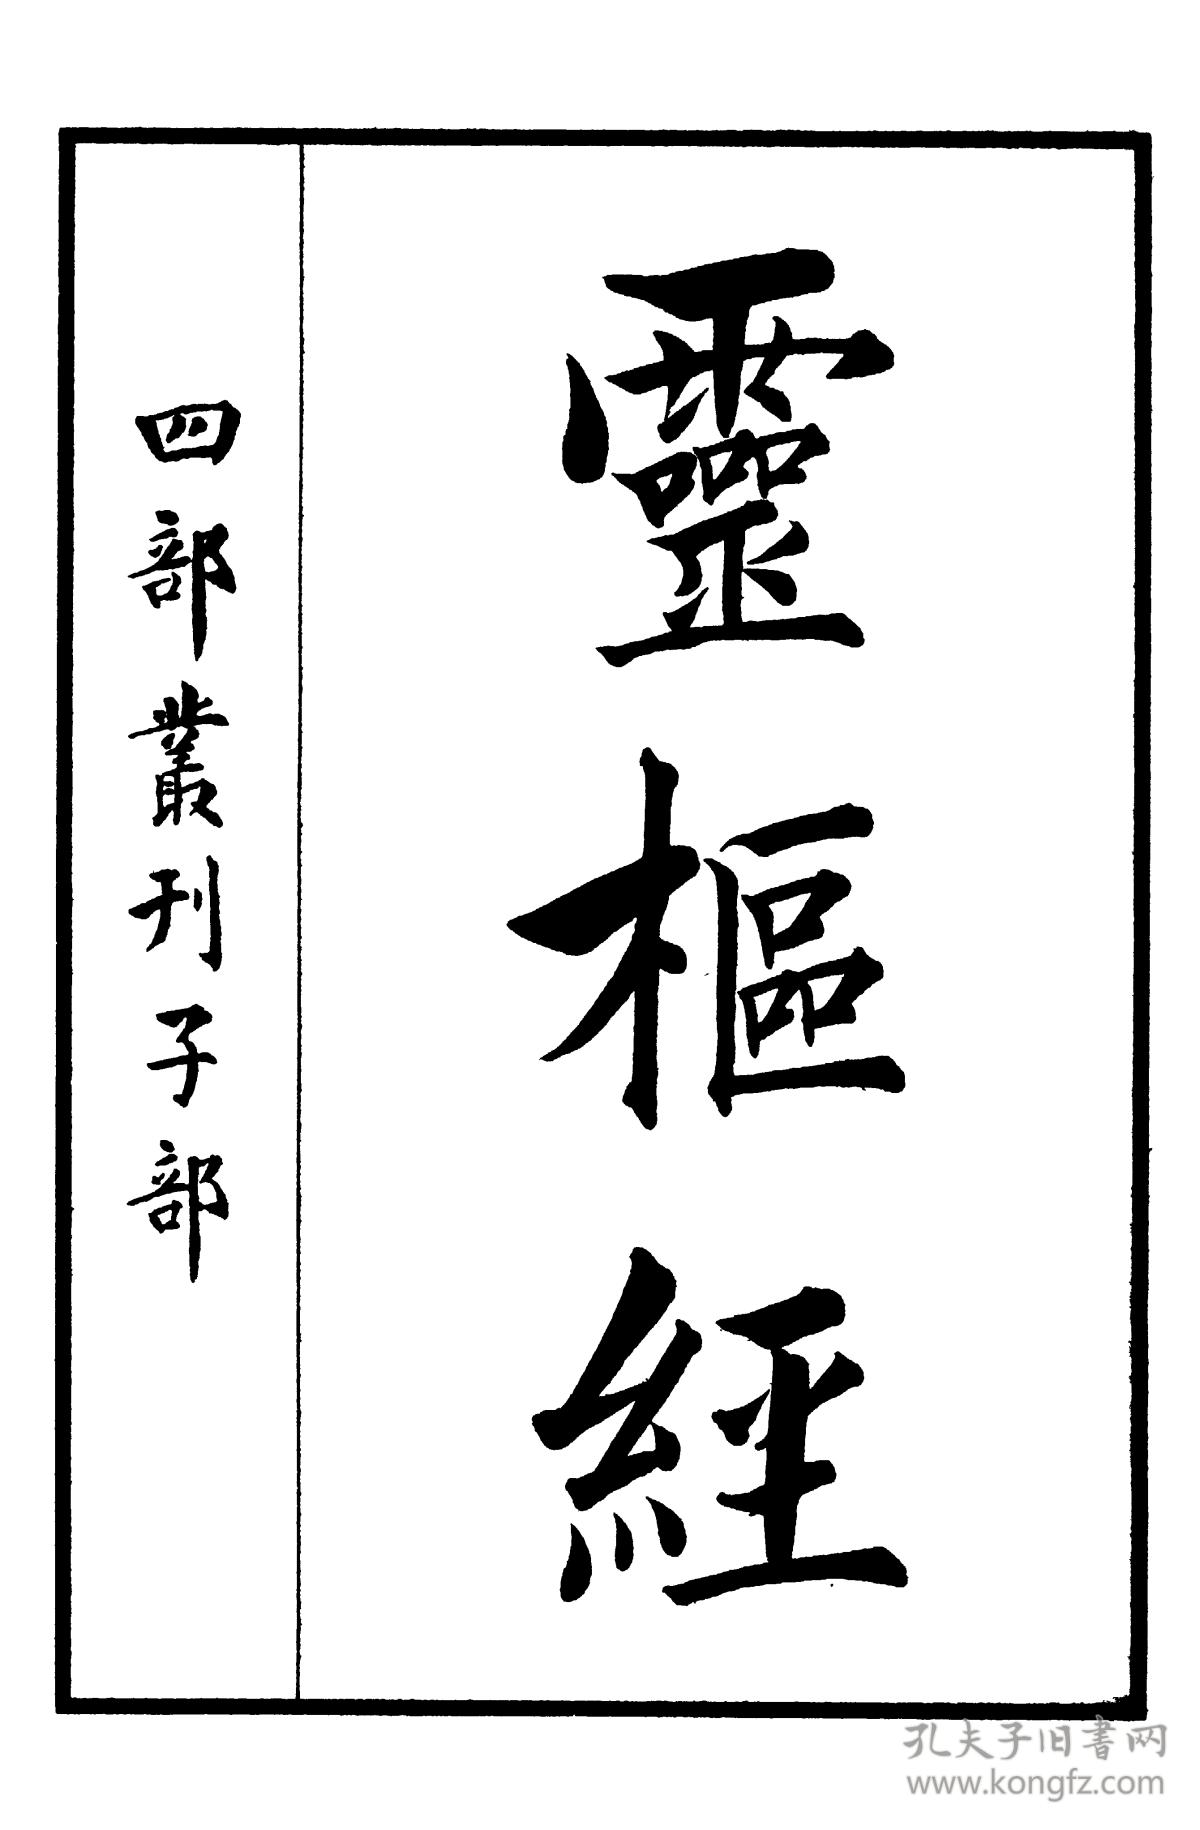 靈樞經
四部叢刊子部
孔夫子旧書网
www.kongfz.com